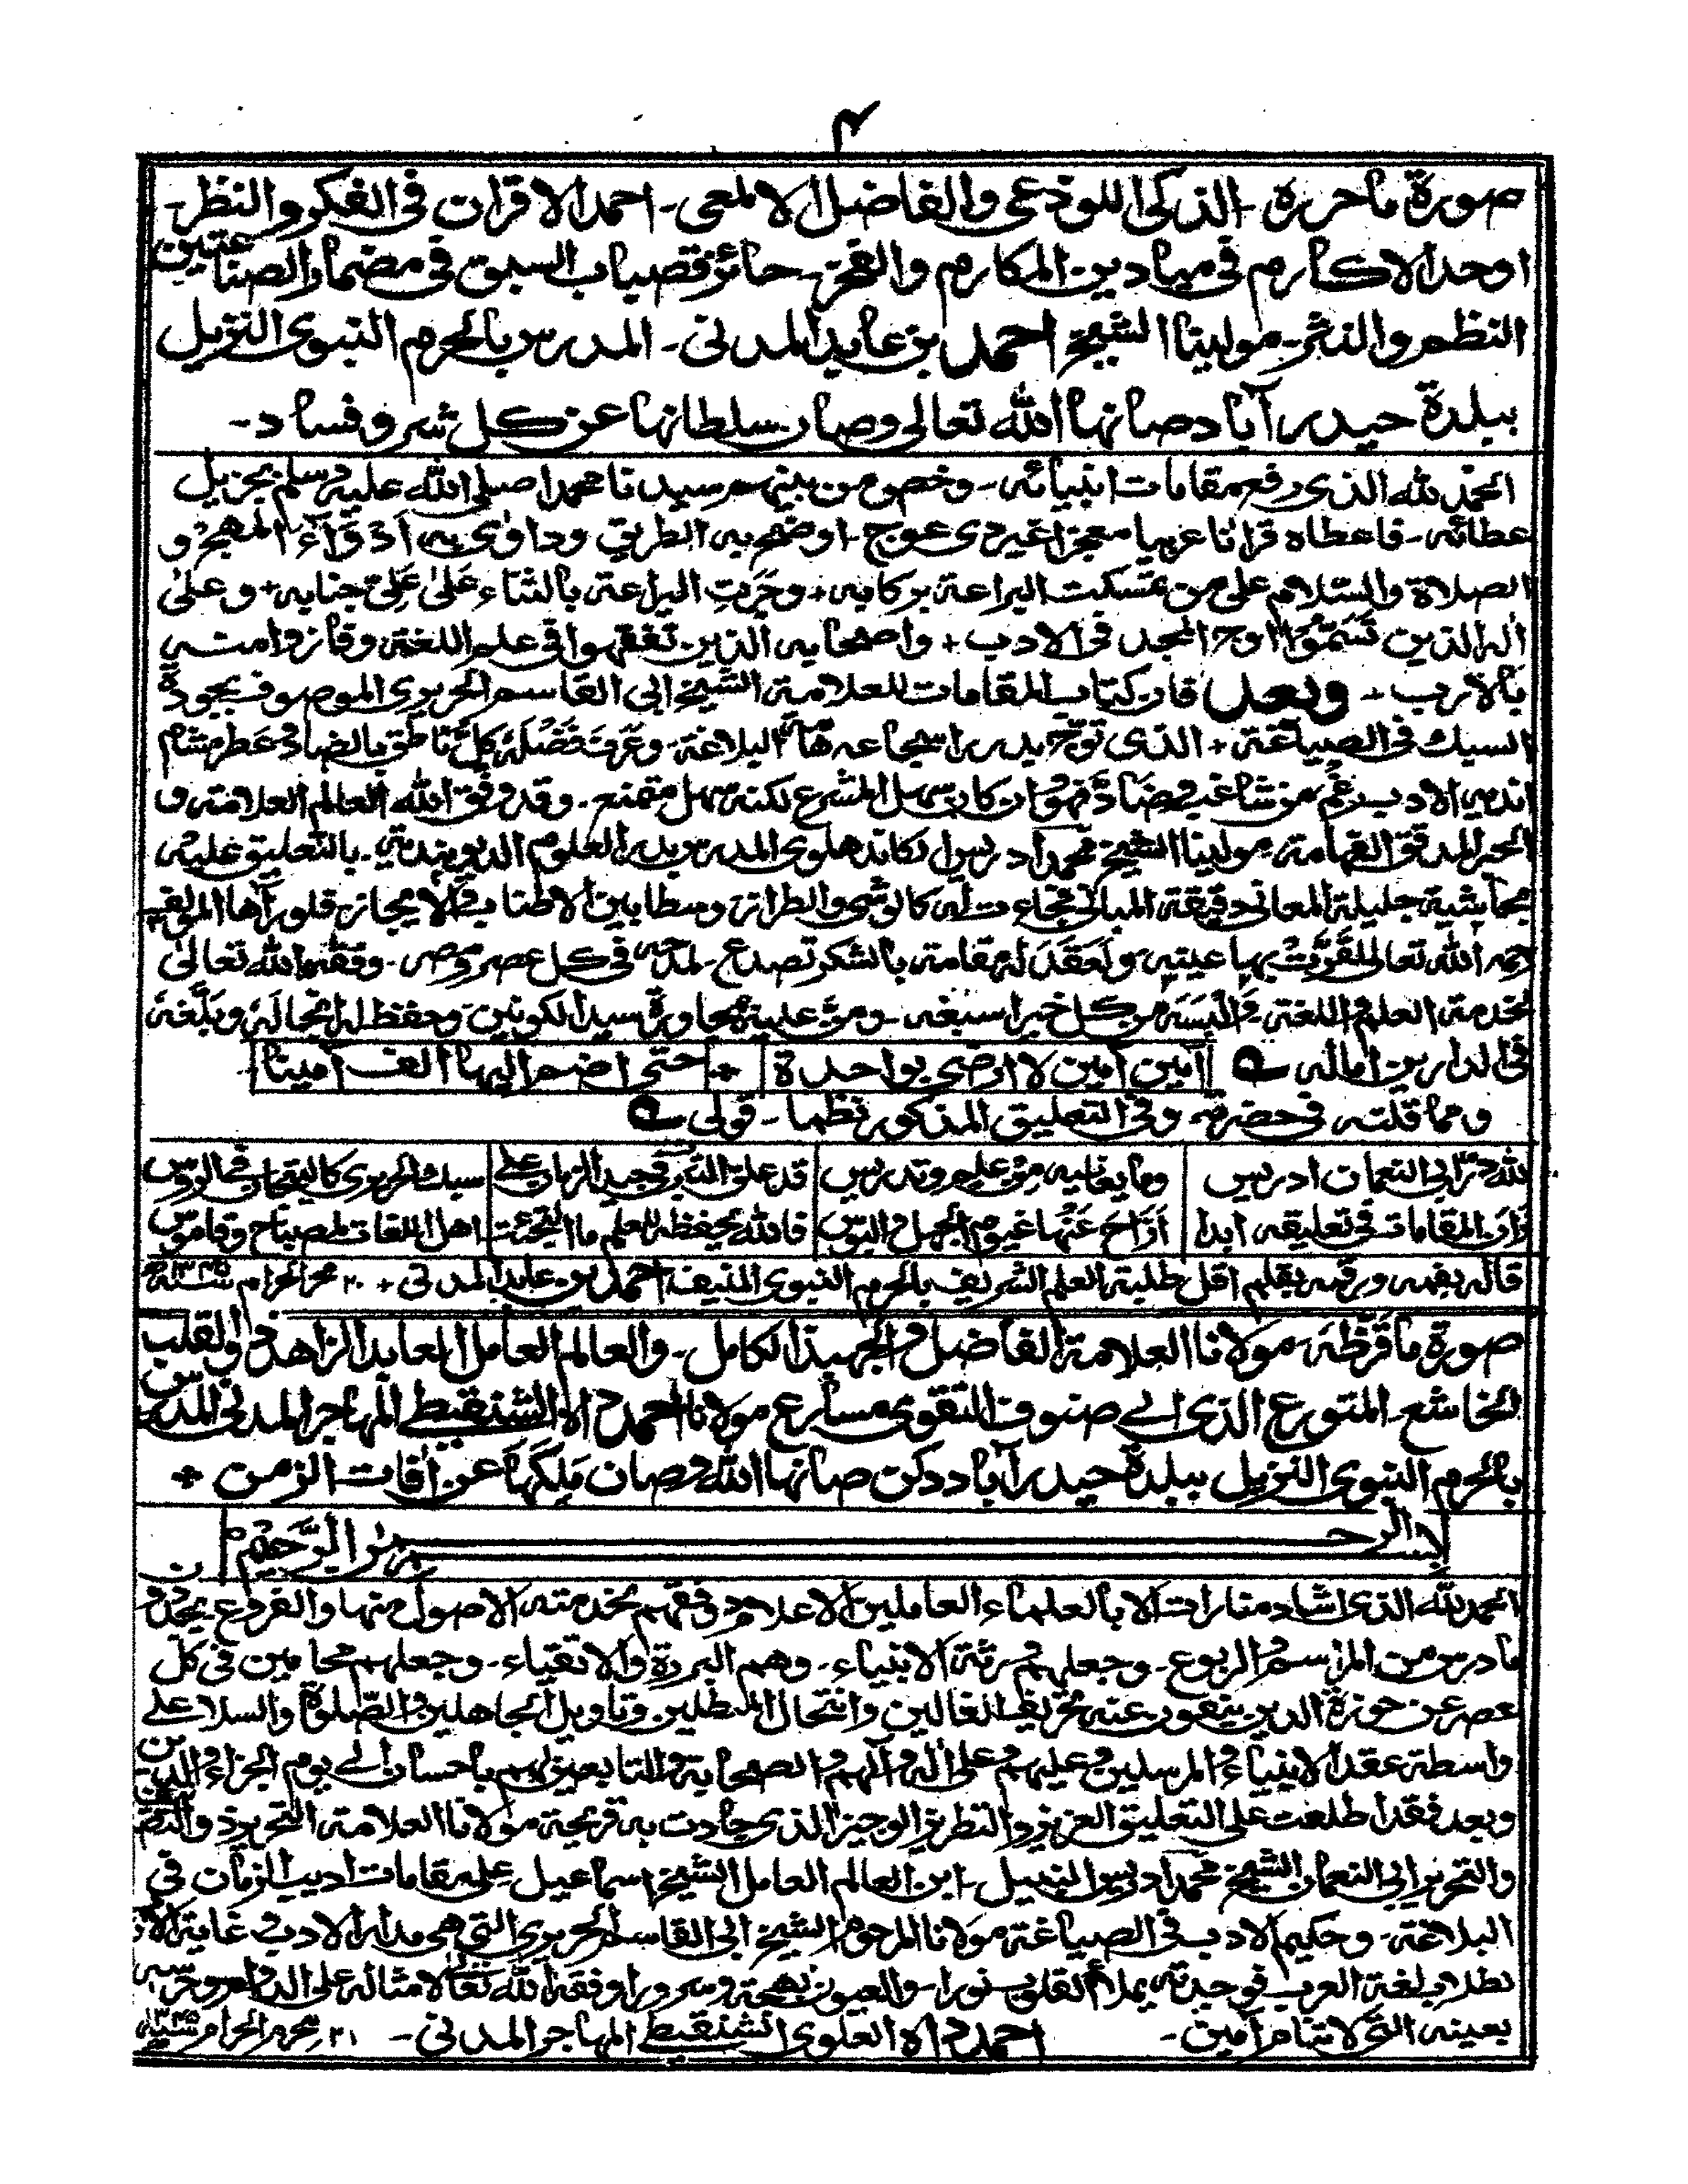 ۴
صورة ما حرره - الذكى اللوذعى والفاضل الالمعى - احمد الاقران فى الفكر والنظر -
اوحد الاكارم فى ميادين المكارم والفخر - حائز قصبات السبق فى مضمار الصناعتين
النظم والنثر - مولينا الشيخ احمد بن عابد المدنى - المدرس بالحرم النبوى النزيل
ببلدة حيدر آباد صانها الله تعالى وصان سلطانها عن كل شر وفساد -
الحمد لله الذى رفع مقامات انبيائه - وخص من بينهم سيدنا محمدا صلى الله عليه وسلم بجزيل
عطائه - فاعطاه قرانا عربيا معجزا غير ذى عوج - اوضح به الطريق وداوى به ادواء المهج و
الصلاة والسلام على من تمسكت البراعة بركابه + وجرت اليراعة بالثناء على على جنابه + وعلى
اله الذين تسنموا اوج المجد فى الادب + واصحابه الذين تفقهوا فى علم اللغة وفازوا منه
بالارب + وبعد فان كتاب المقامات للعلامة الشيخ ابى القاسم الحريرى الموصوف بجودة
السبك فى الصياغة + الذى توج بدرر اسجاعه هامة البلاغة - وعرف فضله كل ناطق بالضاد وعطر مشام
اندية الادب رغم من شاغب وضاد فهو وان كان سهل المشرع لكنه سهل ممتنع - وقد وفق الله العالم العلامة و
الحبر المدقق الفهامة مولينا الشيخ محمد ادريس الكاندهلوى المدرس بدار العلوم الديوبندية - بالتعليق عليه
بحاشية جليلة المعانى دقيقة المبانى فجاءت له كالوشى والطراز وسطا بين الاطناب والايجاز فلو رآها المؤلف
رحمه الله تعالى لقرت بها عينيه ولعقد له مقامة بالشكر تصدع - لمدحه فى كل عصر ومصر - وفقه الله تعالى
لخدمة العلم واللغة والبسه من كل خير اسبغه - ومن عليه بمجاورة سيد الكونين وحفظ له انجاله وبلغه
فى الدارين اماله ؎ آمين آمين لا ارضى بواحدة + حتى اضم اليها الف آمينا
ومما قلته فى حضرته وفى التعليق المذكور نظما - قولى ؎
لله در ابى النعمان ادريس وما يعانيه من علم وتدريس قد علق التبر فى جيد الزمان على سبك الحريرى كالتيجان فى الروس
زان المقامات فى تعليقه ابدا ازاح عنها غيوم الجهل والبوس فالله يحفظه للعلم ما التجئت اهل اللغات لمصباح وقاموس
قاله بفمه ورقمه بقلمه اقل طلبة العلم الشريف بالحرم النبوى المنيف احمد بن عابد المدنى + ۲۰ محرم الحرام سنة ۱۳۴۵ھ
صورة ما قرظه مولانا العلامة الفاضل والجهبذ الكامل - والعالم العامل العابد الزاهد ذو القلب
الخاشع - المتورع الذى الى صنوف التقوى مسارع مولانا احمد داه الشنقيطى المهاجر المدنى المدرس
بالحرم النبوى النزيل ببلدة حيدر آباد دكن صانها الله وصان ملكها عن آفات الزمن +
بسم الله الرحمن الرحيم
الحمد لله الذى اشاد منارات بالعلماء العاملين الاعلام ووفقهم بخدمته الاصول منها والفروع يجددون
ما درس من المراسم والربوع - وجعلهم ورثة الانبياء - وهم البررة والاتقياء - وجعلهم محامين فى كل
عصر عن حوزة الدين ينفون عنه تحريف الغالين وانتحال المبطلين وتاويل الجاهلين والصلوة والسلام على
واسطة عقد الانبياء والمرسلين وعليهم وعلى اله وآلهم والصحابة والتابعين لهم باحسان الى يوم الجزاء والدين
وبعد فقد اطلعت على التعليق العزيز والتطريز الوجيز الذى جادت به قريحة مولانا العلامة النحرير ذو التصنيف
والتحرير ابى النعمان الشيخ محمد ادريس النبيل - ابن العالم العامل الشيخ اسماعيل على مقامات اديب الزمان فى
البلاغة - وحكيم الادب فى الصياغة مولانا المرحوم الشيخ ابى القاسم الحريرى التى هى مدار الادب وغاية
لطلاب لغة العرب فوجدته يملأ القلوب نورا - والعيون بهجة وسرورا وفقه الله تعالى لامثاله على الدوام وحرسه
بعينه التى لا تنام آمين - احمد داه العلوى الشنقيطى المهاجر المدنى - ۲۱ محرم الحرام سنة ۱۳۴۵